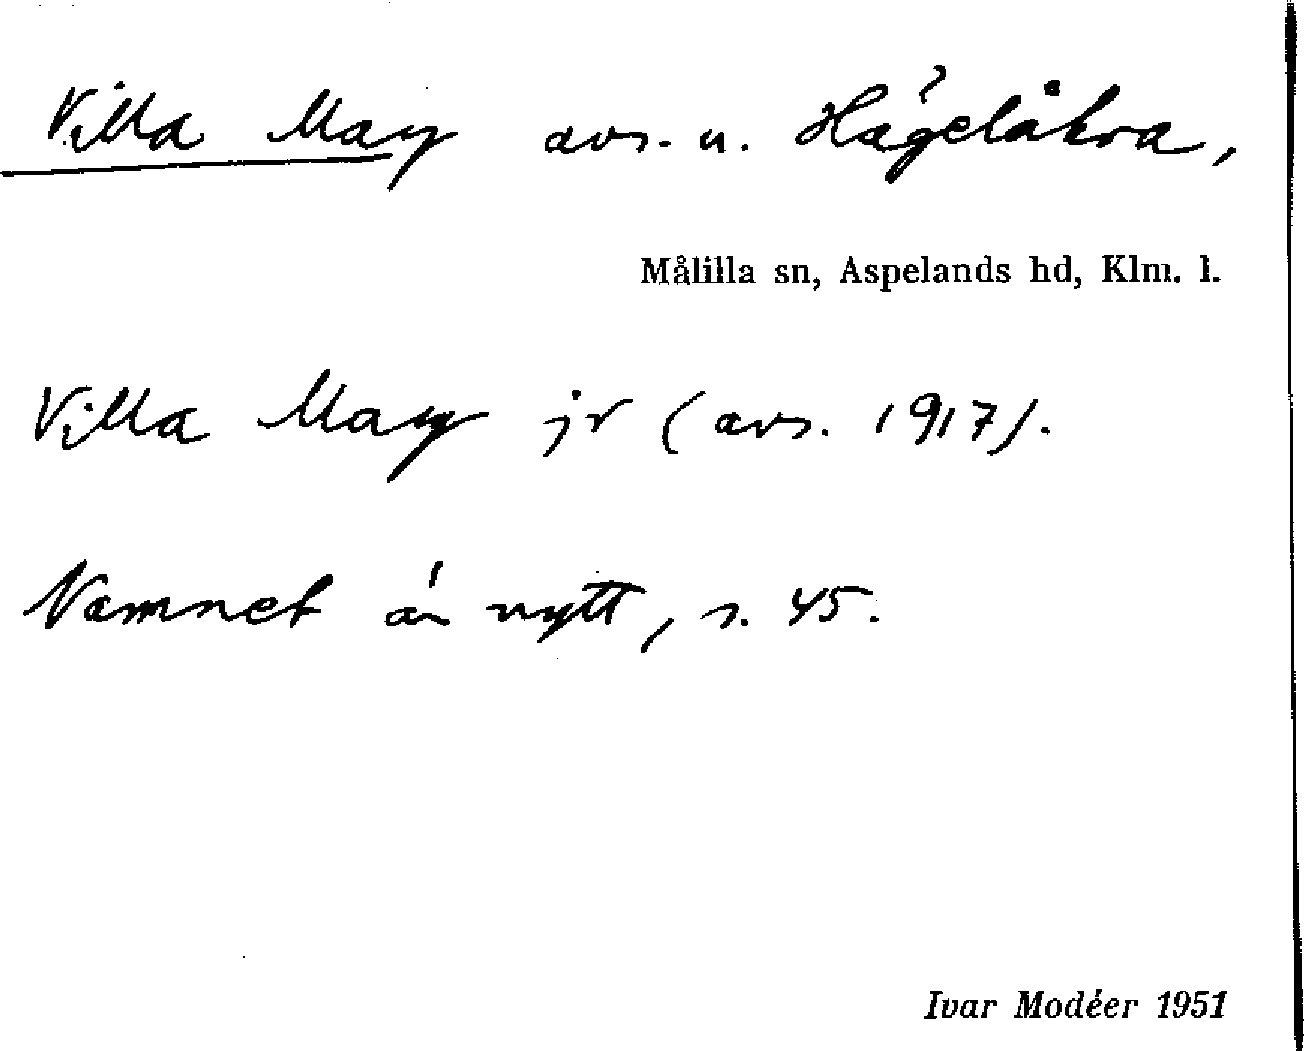 Villa May avs. u. Hägelåkra,
Målilla sn, Aspelands hd, Klm. l.
Villa May jr (avs. 1917).
Namnet är nytt, s. 45.
Ivar Modéer 1951